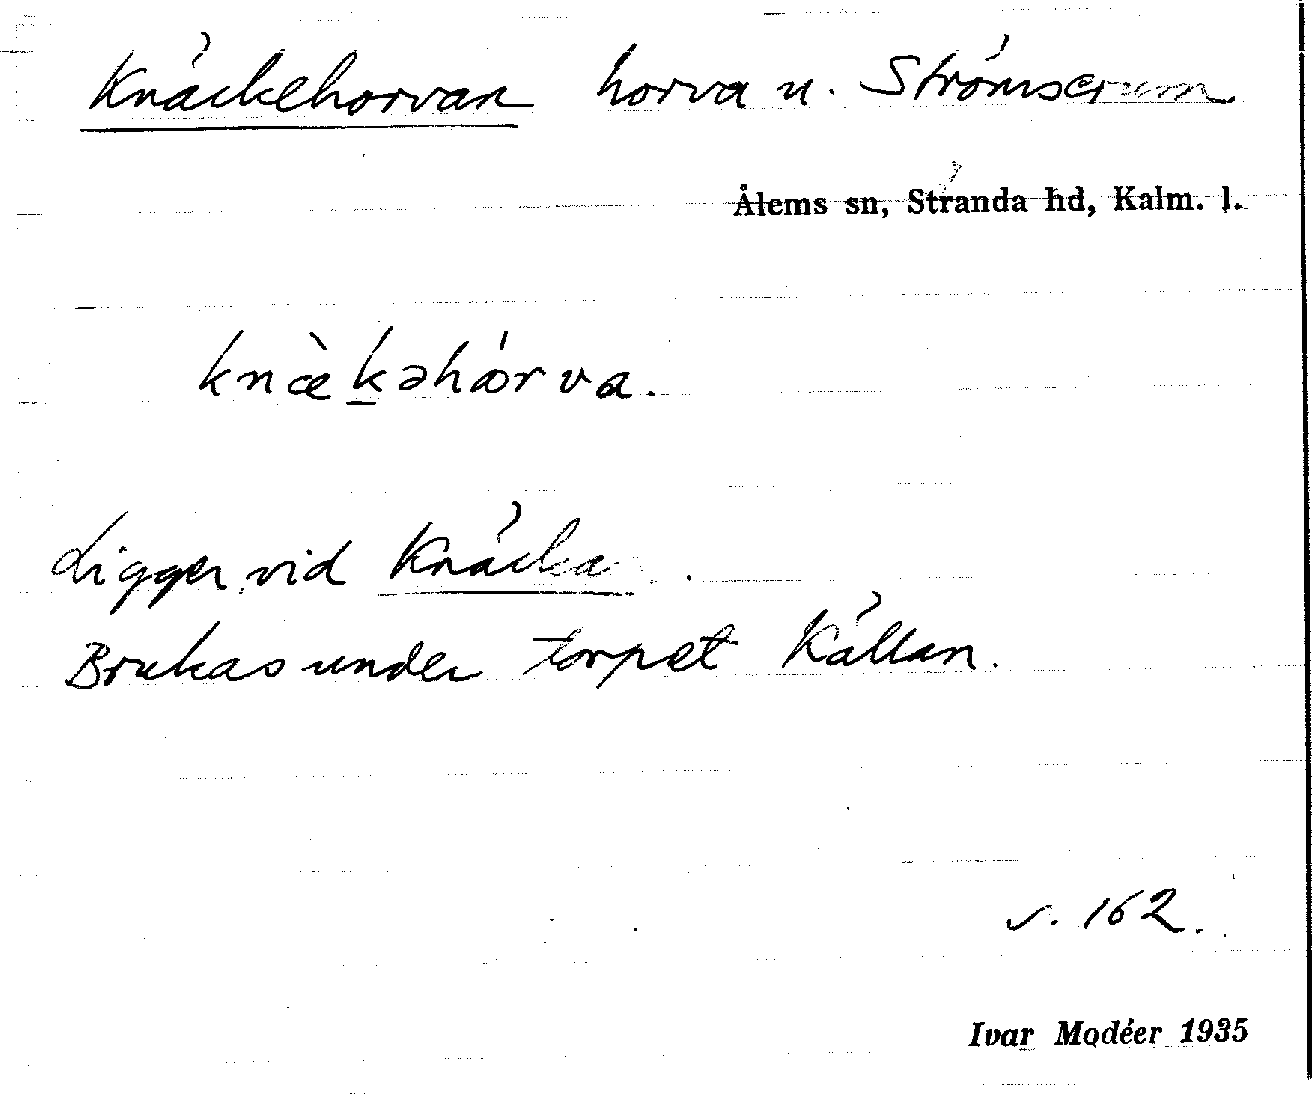 Knäckehorvan horva u. Strömserum
Ålems sn, Stranda hd, Kalm. l.
knæ̀k̲əhɷ́rva.
Ligger vid Knäcka.
Brukas under torpet Källan.
s. 162.
Ivar Modéer 1935